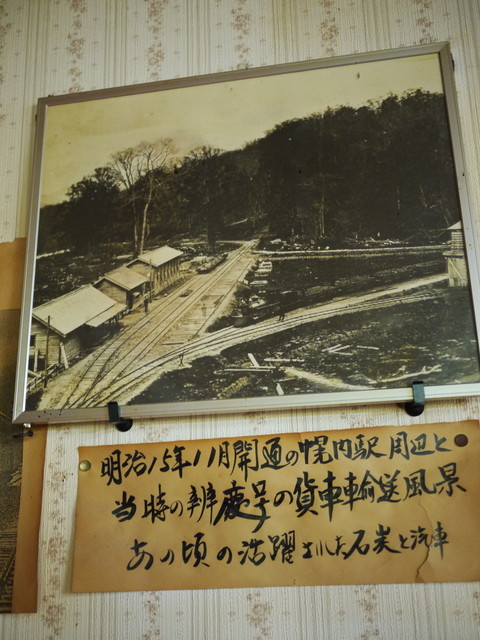 明治15年11月開通の幌内駅周辺と
当時の弁慶号の貨車輸送風景
あの頃の活躍された石炭と汽車